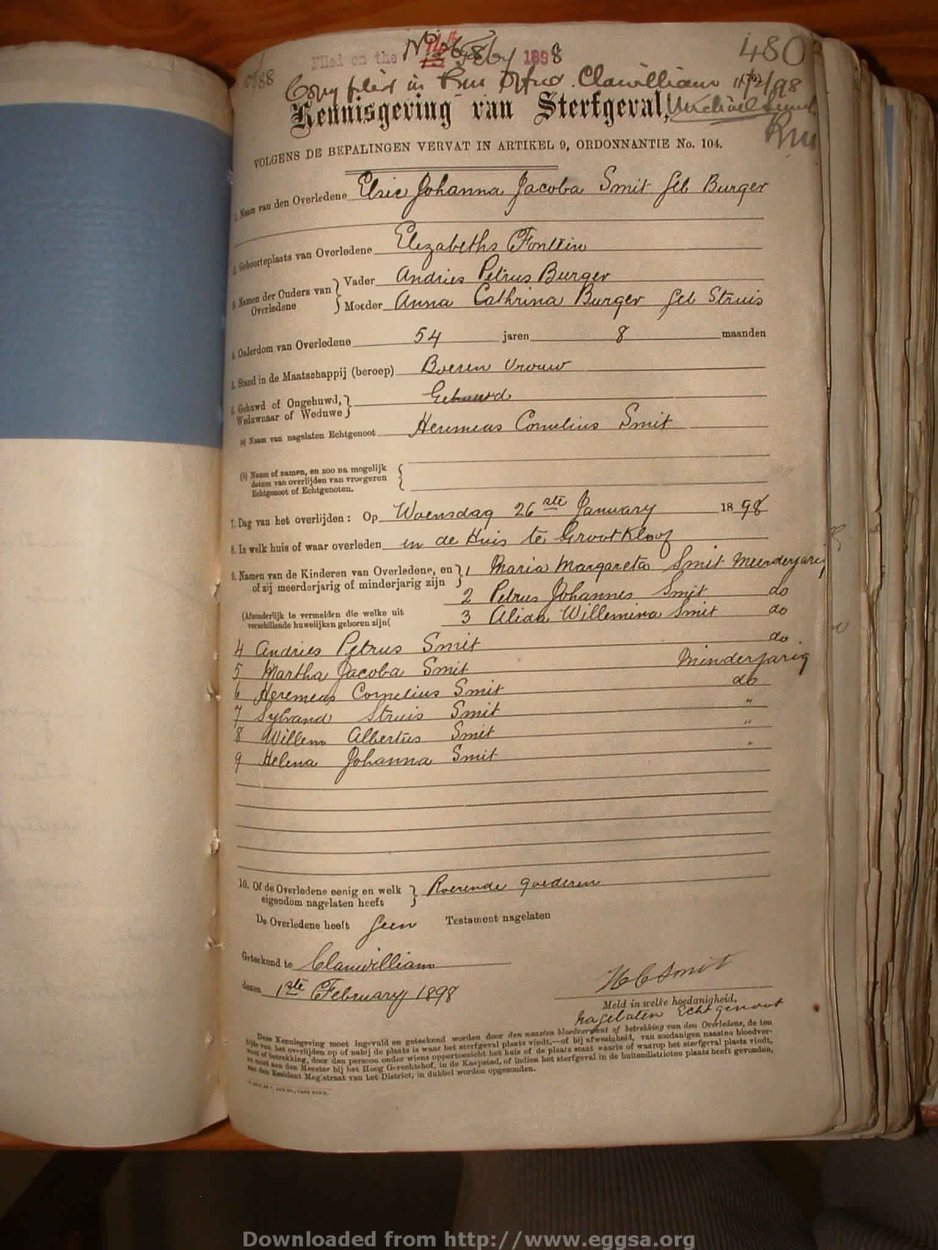 Filed on the Feby 1898
480
Copy filed in Office Clanwilliam
Kennisgeving van Sterfgeval,
VOLGENS DE BEPALINGEN VERVAT IN ARTIKEL 9, ORDONNANTIE No. 104.
1. Naam van den Overledene Elsie Johanna Jacoba Smit geb Burger
2. Geboorteplaats van Overledene Elizabeths Fontein
3. Namen der Ouders van Overledene } Vader Andries Petrus Burger
Moeder Anna Cathrina Burger geb Struis
4. Ouderdom van Overledene 54 jaren 8 maanden
5. Stand in de Maatschappij (beroep) Boeren Vrouw
6. Gehuwd of Ongehuwd, Weduwnaar of Weduwe } Gehuwd
(a) Naam van nagelaten Echtgenoot Heremeas Cornelius Smit
(b) Naam of namen, en zoo na mogelijk
datum van overlijden van vroegeren
Echtgenoot of Echtgenoten.
7. Dag van het overlijden: Op Woensdag 26ste January 1898
8. In welk huis of waar overleden in de Huis te Grootkloof
9. Namen van de Kinderen van Overledene, en of zij meerderjarig of minderjarig zijn } 1 Maria Margareta Smit Meerderjarig
2 Petrus Johannes Smit do
(Afzonderlijk te vermelden die welke uit verschillende huwelijken geboren zijn( 3 Alida Willemina Smit do
4 Andries Petrus Smit do
5 Martha Jacoba Smit Minderjarig
6 Heremeas Cornelius Smit do
7 Sybrand Struis Smit "
8 Willem Albertus Smit "
9 Helena Johanna Smit "
10. Of de Overledene eenig en welk eigendom nagelaten heeft } Roerende goederen
De Overledene heeft Geen Testament nagelaten
Geteekend te Clanwilliam
dezen 1ste February 1898
H C Smit
Meld in welke hoedanigheid.
Nagelaten Echtgenoot
Deze Kennisgeving moet ingevuld en geteekend worden door den naasten bloedverwant of betrekking van den Overledene, de ten
tijde van het overlijden op of nabij de plaats is waar het sterfgeval plaats vindt,—of bij afwezigheid, van zoodanigen naasten bloedver-
want of betrekking, door den persoon onder wiens oppertoezicht het huis of de plaats staat waarin of waarop het sterfgeval plaats vindt,
en moet aan den Meester bij het Hoog Gerechtshof, in de Kaapstad, of indien het sterfgeval in de buitendistricten plaats heeft gevonden,
aan den Resident Magistraat van het District, in dubbel worden opgezonden.
Downloaded from http://www.eggsa.org